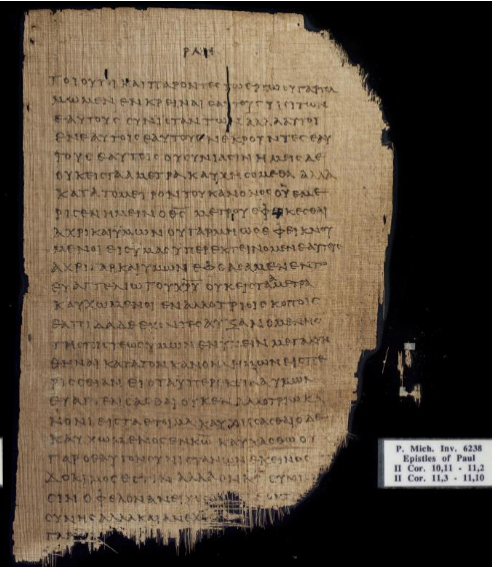 ΤΟΙΟΥΤΟΙ ΚΑΙ ΠΑΡΟΝΤΕϹ ΕΡΓΩ ΟΥ ΓΑΡ
ΜΩΜΕΝ ΕΝΚΡΕΙΝΑΙ ΕΑΥΤΟΥϹ ΤΩΝ
ΕΑΥΤΟΥϹ ϹΥΝΙϹΤΑΝΤΩΝ ΑΛΛΑ ΑΥΤΟΙ
ΕΝ ΕΑΥΤΟΙϹ ΕΑΥΤΟΥϹ ΕΑΥ
ΤΟΥϹ ΕΑΥΤΟΙϹ ΟΥ ϹΥΝΙΑϹΙΝ ΗΜΕΙϹ ΔΕ
ΟΥΚ ΕΙϹ ΤΑ ΑΜΕΤΡΑ ΚΑΥΧΗϹΟΜΕΘΑ ΑΛΛΑ
ΚΑΤΑ ΤΟ ΜΕΤΡΟΝ ΤΟΥ ΚΑΝΟΝΟϹ ΟΥ ΕΜΕ
ΡΙϹΕΝ ΗΜΕΙΝ Ο ΘϹ ΜΕΤΡΟΥ ΕΦΙΚΕϹΘΑΙ
ΑΧΡΙ ΚΑΙ ΥΜΩΝ ΟΥ ΓΑΡ ΜΗ ΩϹ ΕΦΕΙΚΝΟΥ
ΜΕΝΟΙ ΕΙϹ ΥΜΑϹ ΥΠΕΡΕΚΤΕΙΝΟΜΕΝ ΕΑΥΤΟΥϹ
ΑΧΡΙ ΓΑΡ ΚΑΙ ΥΜΩΝ ΕΦΘΑϹΑΜΕΝ ΕΝ ΤΩ
ΕΥΑΓΓΕΛΙΩ ΤΟΥ ΧΡΥ ΟΥΚ ΕΙϹ ΤΑ ΑΜΕΤΡΑ
ΚΑΥΧΩΜΕΝΟΙ ΕΝ ΑΛΛΟΤΡΙΟΙϹ ΚΟΠΟΙϹ
ΕΛΠΙΔΑ ΔΕ ΕΧΟΝΤΕϹ ΑΥΞΑΝΟΜΕΝΗϹ
ΤΗϹ ΠΙϹΤΕΩϹ ΥΜΩΝ ΕΝ ΥΜΕΙΝ ΜΕΓΑΛΥΝ
ΘΗΝΑΙ ΚΑΤΑ ΤΟΝ ΚΑΝΟΝΑ ΗΜΩΝ ΕΙϹ ΠΕ
ΡΙϹϹΕΙΑΝ ΕΙϹ ΤΑ ΥΠΕΡΕΚΕΙΝΑ ΥΜΩΝ
ΕΥΑΓΓΕΛΙϹΑϹΘΑΙ ΟΥΚ ΕΝ ΑΛΛΟΤΡΙΩ ΚΑ
ΝΟΝΙ ΕΙϹ ΤΑ ΕΤΟΙΜΑ ΚΑΥΧΗϹΑϹΘΑΙ Ο ΔΕ
ΚΑΥΧΩΜΕΝΟϹ ΕΝ ΚΩ ΚΑΥΧΑϹΘΩ ΟΥ
ΓΑΡ Ο ΕΑΥΤΟΝ ϹΥΝΙϹΤΑΝΩΝ ΕΚΕΙΝΟϹ
ΔΟΚΙΜΟϹ ΕϹΤΙΝ ΑΛΛΑ ΟΝ ϹΥΝΙ
ϹΙΝ ΟΦΕΛΟΝ ΑΝΕΙΧΕϹΘΕ
ϹΥΝΗϹ ΑΛΛΑ ΚΑΙ ΑΝΕΧ
P. Mich. Inv. 6238
Epistles of Paul
II Cor. 10,11 - 11,2
II Cor. 11,3 - 11,10